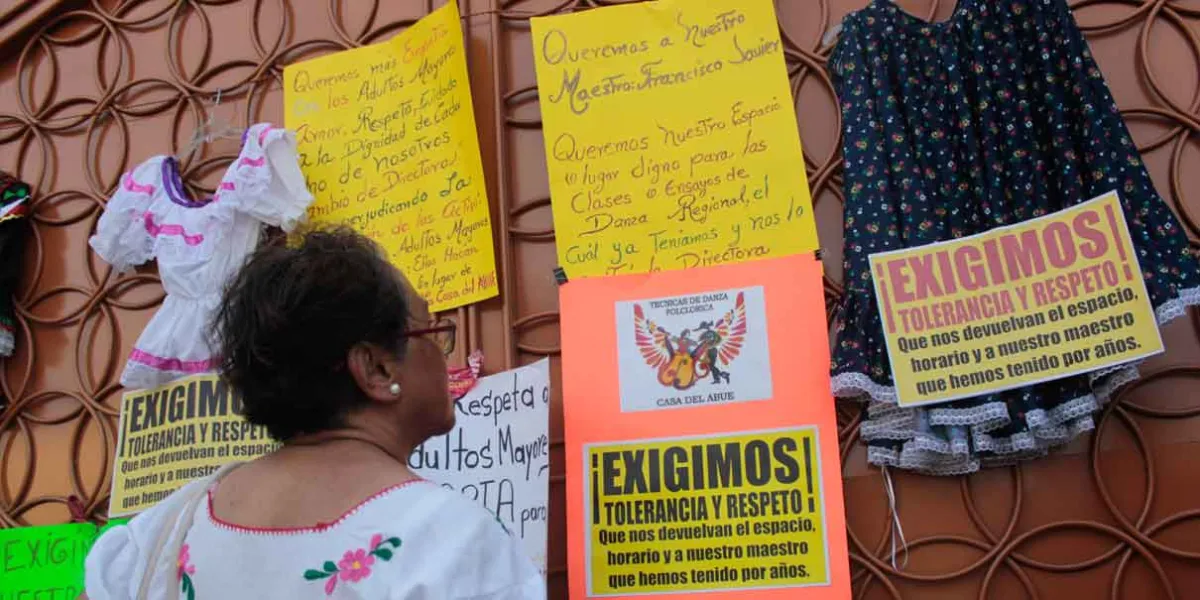 Queremos más Empatía
Con los Adultos Mayores
Amor, Respeto, Cuidado
a la Dignidad de Cada
de nosotros
Cambio de Directora
perjudicando La
de las Activi
Adultos Mayores
Elias Hacían
en lugar de
Casa del ABUE
Queremos a Nuestro
Maestro: Francisco Javier
Queremos Nuestro Espacio
lugar digno para las
Clases o Ensayos de
Danza Regional, el
Cuál ya Teníamos y nos lo
Directora
TECNICAS DE DANZA
FOLCLORICA
CASA DEL ABUE
¡EXIGIMOS!
TOLERANCIA Y RESPETO
Que nos devuelvan el espacio,
horario y a nuestro maestro
que hemos tenido por años.
¡EXIGIMOS!
TOLERANCIA Y RESPETO
Que nos devuelvan el espacio,
horario y a nuestro maestro
que hemos tenido por años.
¡EXIGIMOS
TOLERANCIA Y RESPETO
Que nos devuelvan el espacio
horario y a nuestro
que hemos
Respeto a
Adultos Mayore
para
EXIGIM